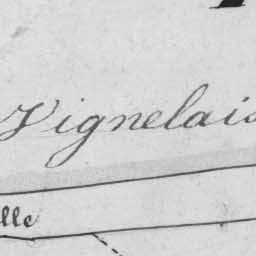 Vignelais
lle